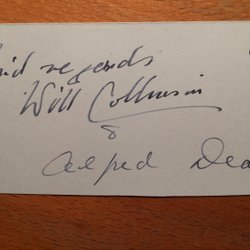 kind regards
Will Collinson
&
Alfred Dea